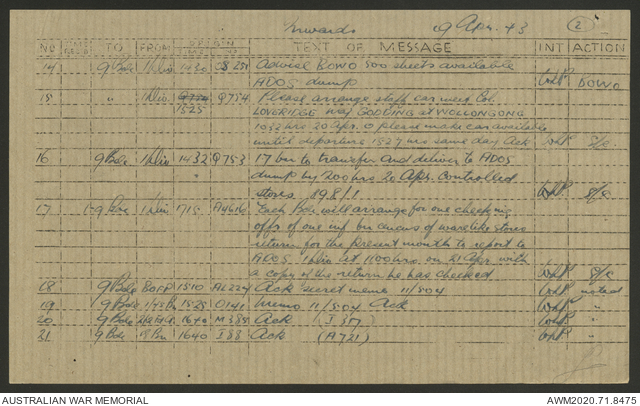 Inwards 9 Apr. 43 2
NO TIME REC'D TO FROM ORIGIN TIME NO TEXT OF MESSAGE INT ACTION
14 9 Bde 1 Div 1430 Advise BOWO 500 sheets available
ADOS dump BOWO
15 " 1 Div. 1525 Q754 Please arrange staff car meet Col.
LOVERIDGE Maj GODLING at WOLLONGONG
1032 hrs 20 Apr. o please make car available
until departure 1527 hrs same day Ack
16 9 Bde 1 Div 1432 Q753 17 bn to transfer and deliver to ADOS
dump by 200 hrs 20 Apr. Controlled
stores
17 9 Bde 1 Div 1715 A4616 Each Bde will arrange for one checking
offr of one inf bn of warelike stores
return for the present month to report to
ADOS 1 Div at 1100 hrs on 21 Apr. with
a copy of the return he has checked
18 9 Bde 1510 Ack secret memo 11/504 noted
19 9 Bde 1525 O141 Memo 11/504 Ack "
20 9 Bde 1640 M385 Ack (I 317) "
21 9 Bde 1640 I 88 Ack (A721) "
AUSTRALIAN WAR MEMORIAL AWM2020.71.8475